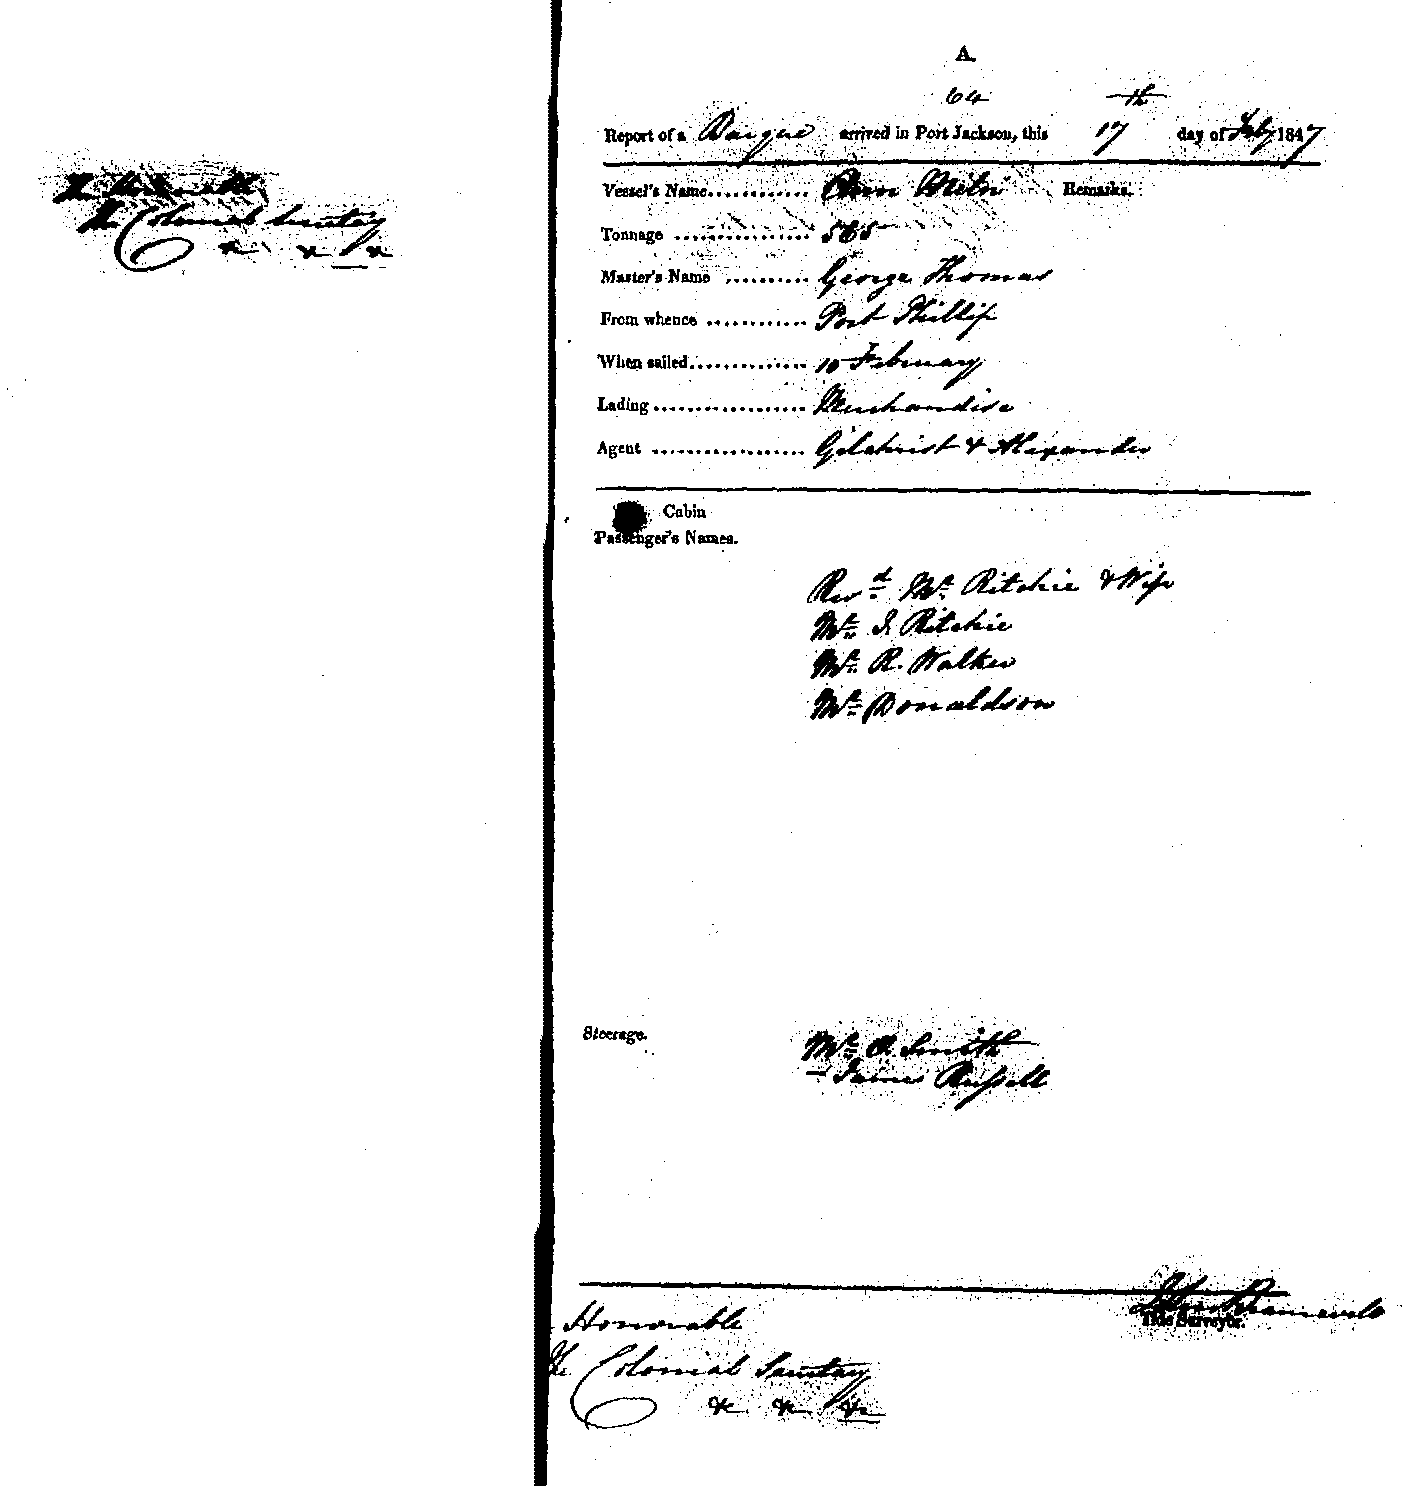 The Honorable
The Colonial Secretary
&c &c &c
A.
64
Report of a Barque arrived in Port Jackson, this 17th day of Feby 1847
Vessel's Name............ Ann Remarks.
Tonnage ................ 565
Master's Name .......... George Thomas
From whence ............ Port Phillip
When sailed.............. 10 February
Lading ................... Merchandise
Agent .................. Gilchrist & Alexander
Cabin
Passenger's Names.
Revd. Mr. Ritchie & Wife
Mr. J. Ritchie
Mr. R. Walker
Mr. Donaldson
Steerage.
Mr. Smith
— James Russell
Tide Surveyor.
Honorable
The Colonial Secretary
&c &c &c